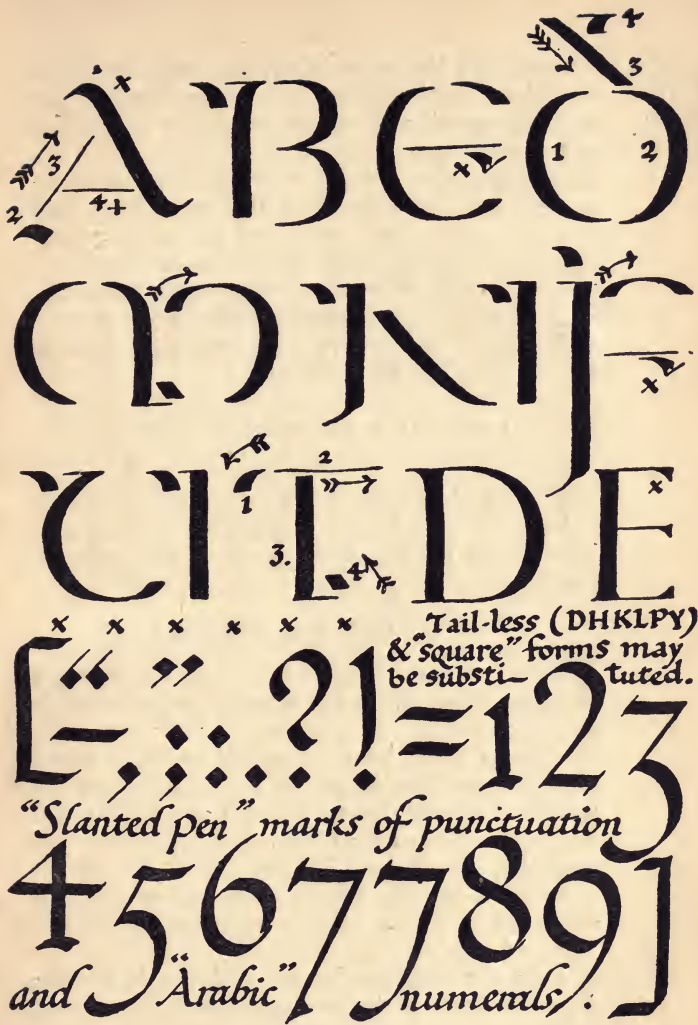 4
x 3
A B E D
3 1 2
x
4x
2
M N F
x
2
1 x
U T D E
3. 4
x x x x x x
Tail-less (DHKLPY)
& "square" forms may
be substi- tuted.
[ “ ” ? ! = 1 2 3
- , ; : . .
“Slanted pen” marks of punctuation
4 5 6 7 7 8 9 ]
and “Arabic” numerals.